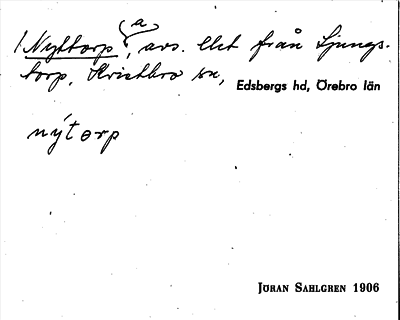 a
1 Nyttorp, avs. till från Ljungs-
torp, Kvistbro sn,
Edsbergs hd, Örebro län
nýtorp
JÖRAN SAHLGREN 1906